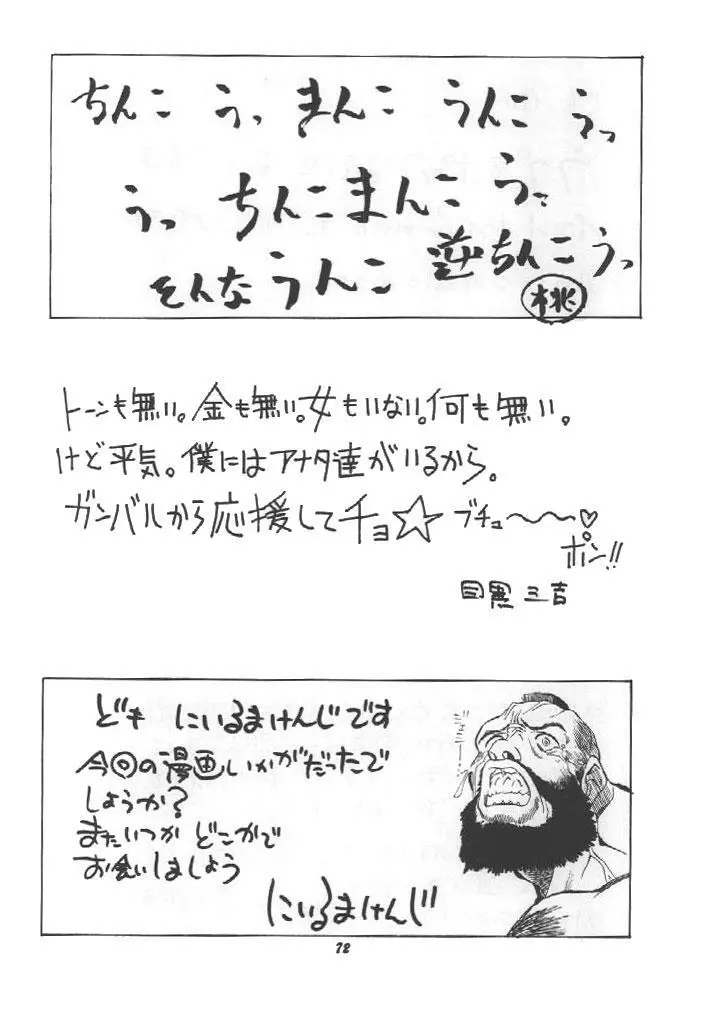 ちんこ うっ まんこ うんこ うっ
うっ ちんこまんこ うっ
そんなうんこ 逆ちんこうっ
桃
トーンも無い。金も無い。女もいない。何も無い。
けど平気。僕にはアナタ達がいるから。
ガンバルから応援してチョ☆ ブチョ〜〜〜♡
ポン!!
目黒 三吉
ども にいるまけんじです
今回の漫画いかがだったで
しょうか?
またいつか どこかで
お会いしましょう
にいるまけんじ
72